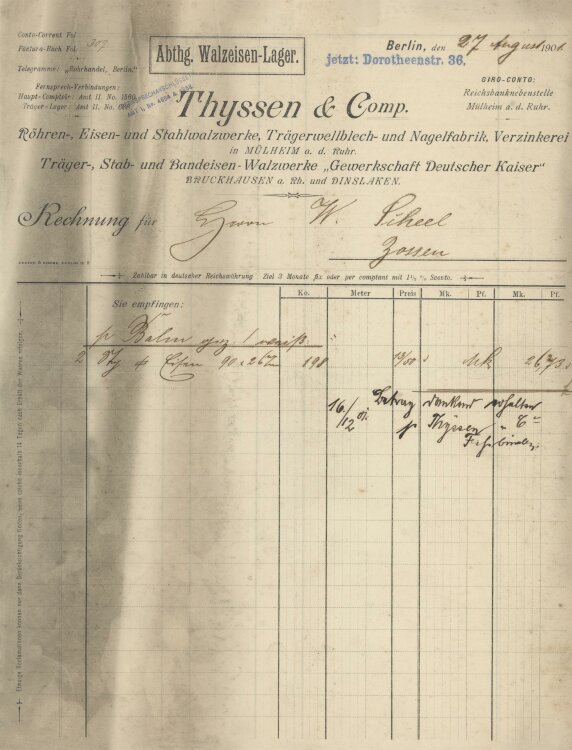 Conto-Corrent Fol
Factura-Buch Fol. 307
Telegramme: „Röhrhandel, Berlin."
Fernsprech-Verbindungen:
Haupt-Comptoir: Amt II. No. 1560
Träger-Lager: Amt II. No.
Abthg. Walzeisen-Lager.
Berlin, den 27 August 1901.
jetzt: Dorotheenstr. 36.
GIRO-CONTO:
Reichsbanknebenstelle
Mülheim a. d. Ruhr.
Thyssen & Comp.
Röhren-, Eisen- und Stahlwalzwerke, Trägerwellblech- und Nagelfabrik, Verzinkerei
in MÜLHEIM a. d. Ruhr.
Träger-, Stab- und Bandeisen-Walzwerke „Gewerkschaft Deutscher Kaiser"
BRUCKHAUSEN a. Rh. und DINSLAKEN.
Rechnung für Herrn W. Scheel
Zossen
Zahlbar in deutscher Reichswährung Ziel 3 Monate fix oder per comptant mit 1½ % Sconto.
Ko. Meter Preis Mk. Pf. Mk. Pf.
Sie empfingen:
p Bahn
2 Eisen 198 Mk 26,73
Betrag dankend erhalten
16/12 01. p Thyssen & C
Etwaige Reclamationen können nur dann Berücksichtigung finden, wenn solche innerhalb 14 Tagen nach Erhalt der Waaren erfolgen.